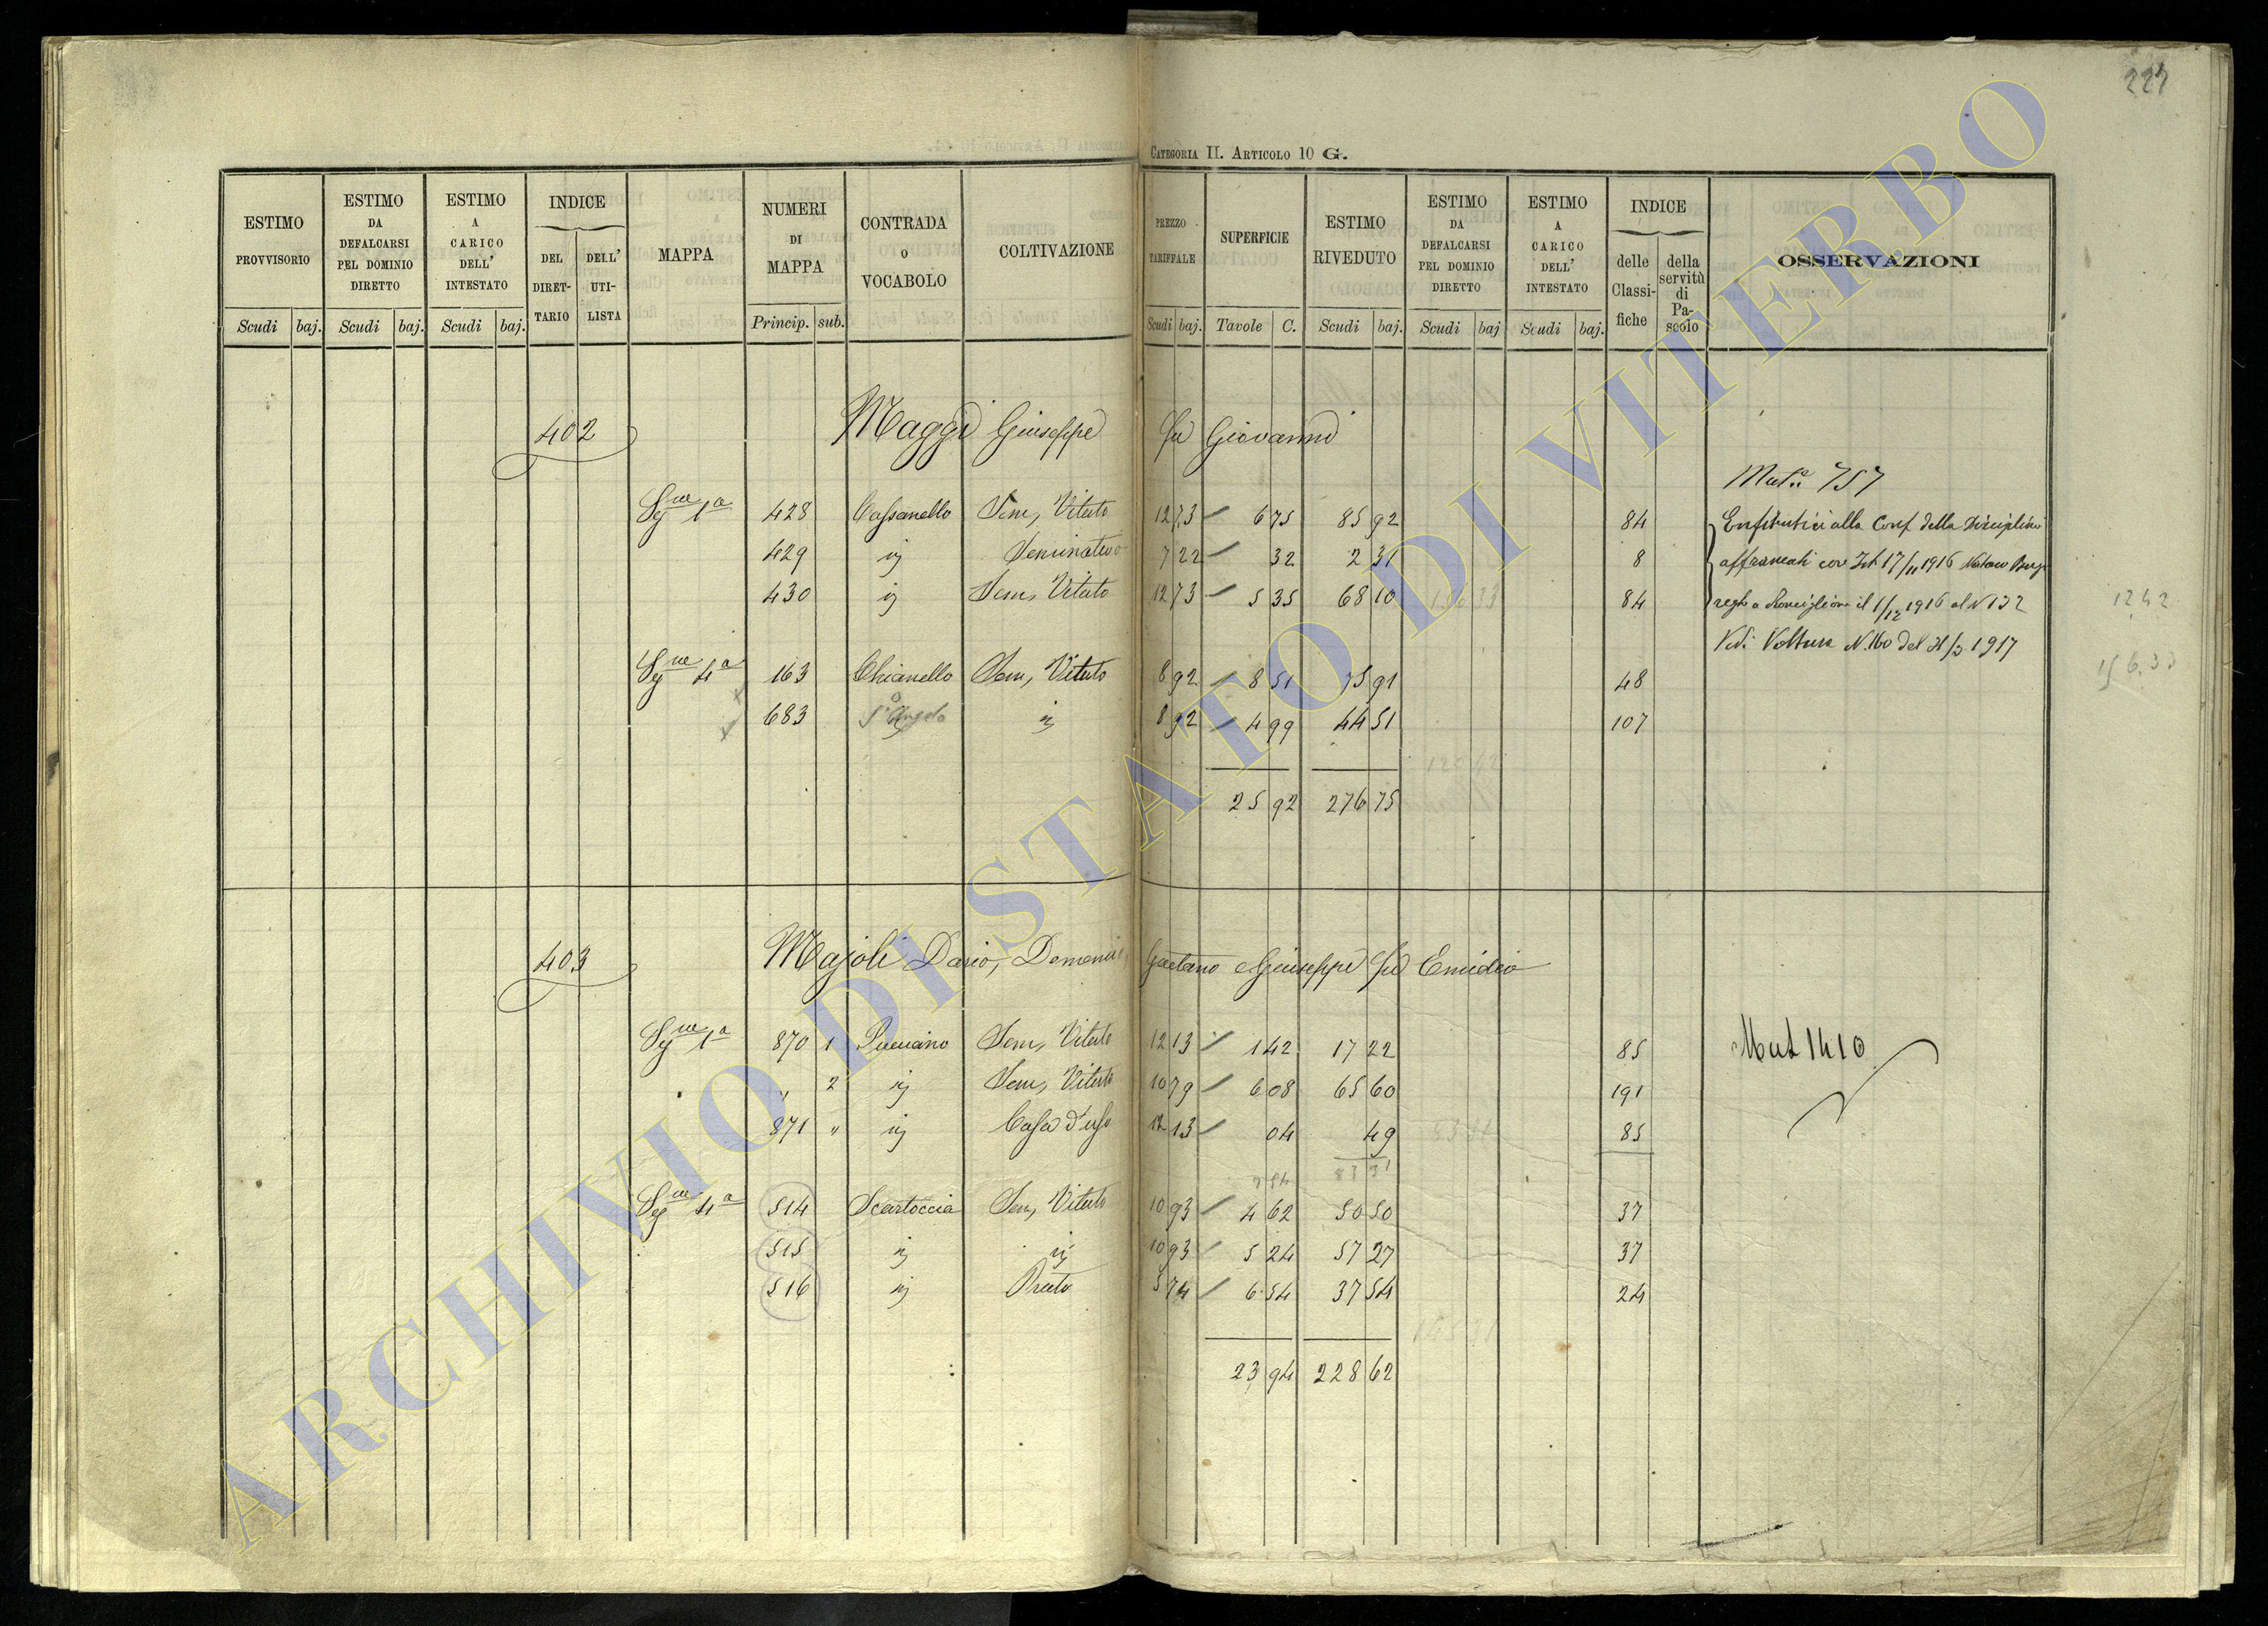 227
CATEGORIA II. ARTICOLO 10 G.
ESTIMO PROVVISORIO Scudi baj.
ESTIMO DA DEFALCARSI PEL DOMINIO DIRETTO Scudi baj.
ESTIMO A CARICO DELL' INTESTATO Scudi baj.
INDICE DEL DIRET-TARIO DELL' UTI-LISTA
MAPPA
NUMERI DI MAPPA Princip. sub.
CONTRADA O VOCABOLO
COLTIVAZIONE
PREZZO TARIFFALE Scudi baj.
SUPERFICIE Tavole C.
ESTIMO RIVEDUTO Scudi baj.
ESTIMO DA DEFALCARSI PEL DOMINIO DIRETTO Scudi baj
ESTIMO A CARICO DELL' INTESTATO Scudi baj.
INDICE delle Classi-fiche della servitù di Pa-scolo
OSSERVAZIONI
402 Maggi Giuseppe fu Giovanni
Mut.e 757
Sgne 1a 428 Cassanello Sem, Vitato 12 73 6 75 85 92 84 Enfiteutici alla Conf. della Disciplina
429 ij Seminativo 7 22 32 2 31 8 affrancati con Ist 17/11 1916
430 ij Sem, Vitato 12 73 5 35 68 10 84 regto a Ronciglione il 1/12 1916 al N 132
1242
Vedi Voltura N. 160 del 1917
Sgne 4a 163 Chianello Sem, Vitato 8 92 8 51 75 91 48
156.33
683 S. Angelo ij 8 92 4 99 44 51 107
25 92 276 75
403 Majoli Dario, Domenico, Gaetano e Giuseppe fu Emidio
Sgne 1a 870 1 Pucciano Sem, Vitato 12 13 1 42 17 22 85 Mut 1410
" 2 ij Sem, Vitato 10 79 6 08 65 60 191
871 " ij Casa d'uso 12 13 04 49 85
7 54 83 31
Sgne 4a 514 Scartoccia Sem, Vitato 10 93 4 62 50 50 37
515 ij ij 10 93 5 24 57 27 37
516 ij Prato 5 74 6 54 37 54 24
23 94 228 62
ARCHIVIO DI STATO DI VITERBO